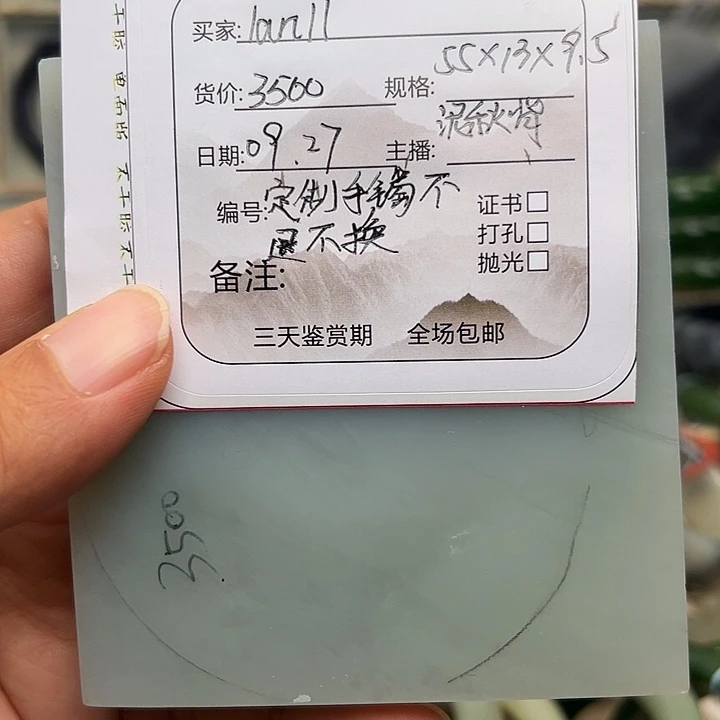 买家: lanll
货价: 3500 规格: 55×13×9.5
日期: 09.27 主播: 泥秋背
编号: 定制手镯不
退不换
备注:
证书□
打孔□
抛光□
三天鉴赏期 全场包邮
3500